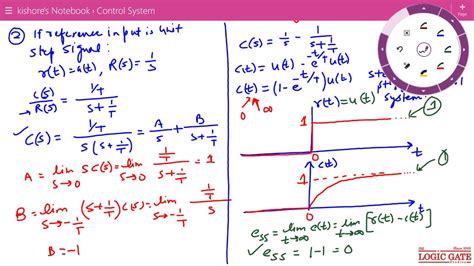 kishore's Notebook › Control System
② If reference input is unit
step signal:
r(t)=u(t), R(s)=1/S
C(s)/R(s) = 1/T / S+1/T
C(s) = 1/T / S(S+1/T) = A/S + B/S+1/T
A = lim S→0 S C(s) = lim S→0 1/T / S+1/T = 1
B = lim S→-1/T (S+1/T) C(s) = lim S→-1/T 1/T / S
B = -1
C(s) = 1/S - 1/S+1/T
c(t) = u(t) - e^-t/T u(t)
c(t) = (1 - e^-t/T) u(t)
0 ∞
system
r(t)=u(t) ①
1
0 t
c(t) ①
1
0 t
ess = lim t→∞ e(t) = lim t→∞ [r(t) - c(t)]
✓ ess = 1-1 = 0
Page
LOGIC GATE